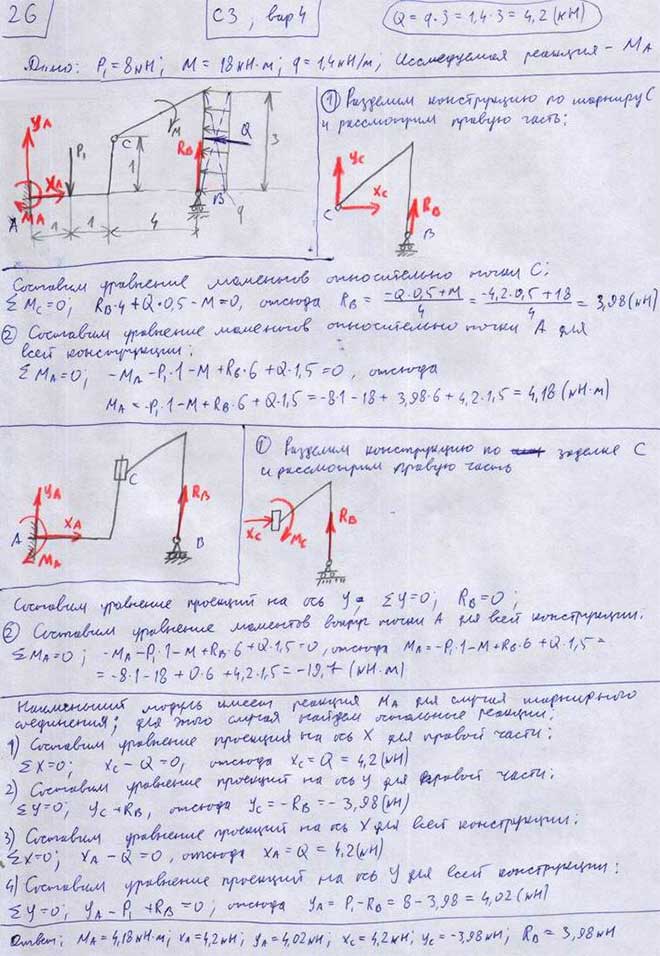 26
С3, вар 4
Q = q·3 = 1,4·3 = 4,2 (кН)
Дано: P₁ = 8 кН; M = 18 кН·м; q = 1,4 кН/м; Исследуемая реакция - MA
YA
P₁
C
M
RB
Q
3
XA
1
A
MA
B
1
1
4
q
① Разделим конструкцию по шарниру C
и рассмотрим правую часть;
YC
XC
C
RB
B
Составим уравнение моментов относительно точки C;
ΣMC=0; RB·4+Q·0,5-M=0, отсюда RB = (-Q·0,5+M)/4 = (-4,2·0,5+18)/4 = 3,98 (кН)
② Составим уравнение моментов относительно точки A для
всей конструкции;
ΣMA=0; -MA-P₁·1-M+RB·6+Q·1,5=0, отсюда
MA = -P₁·1-M+RB·6+Q·1,5 = -8·1-18+3,98·6+4,2·1,5 = 4,18 (кН·м)
YA
C
XA
A
MA
RB
B
① Разделим конструкцию по заделке C
и рассмотрим правую часть
XC
MC
RB
Составим уравнение проекций на ось Y; ΣY=0; RB=0;
② Составим уравнение моментов вокруг точки A для всей конструкции:
ΣMA=0; -MA-P₁·1-M+RB·6+Q·1,5=0, отсюда MA=-P₁·1-M+RB·6+Q·1,5=
= -8·1-18+0·6+4,2·1,5=-19,7 (кН·м)
Наименьший модуль имеет реакция MA для случая шарнирного
соединения; для этого случая найдем остальные реакции;
1) Составим уравнение проекций на ось X для правой части;
ΣX=0; XC-Q=0, отсюда XC=Q=4,2 (кН)
2) Составим уравнение проекций на ось Y для правой части;
ΣY=0; YC+RB, отсюда YC=-RB=-3,98 (кН)
3) Составим уравнение проекций на ось X для всей конструкции:
ΣX=0; XA-Q=0, отсюда XA=Q=4,2 (кН)
4) Составим уравнение проекций на ось Y для всей конструкции:
ΣY=0; YA-P₁+RB=0; отсюда YA=P₁-RB=8-3,98=4,02 (кН)
Ответ: MA=4,18 кН·м; XA=4,2 кН; YA=4,02 кН; XC=4,2 кН; YC=-3,98 кН; RB=3,98 кН